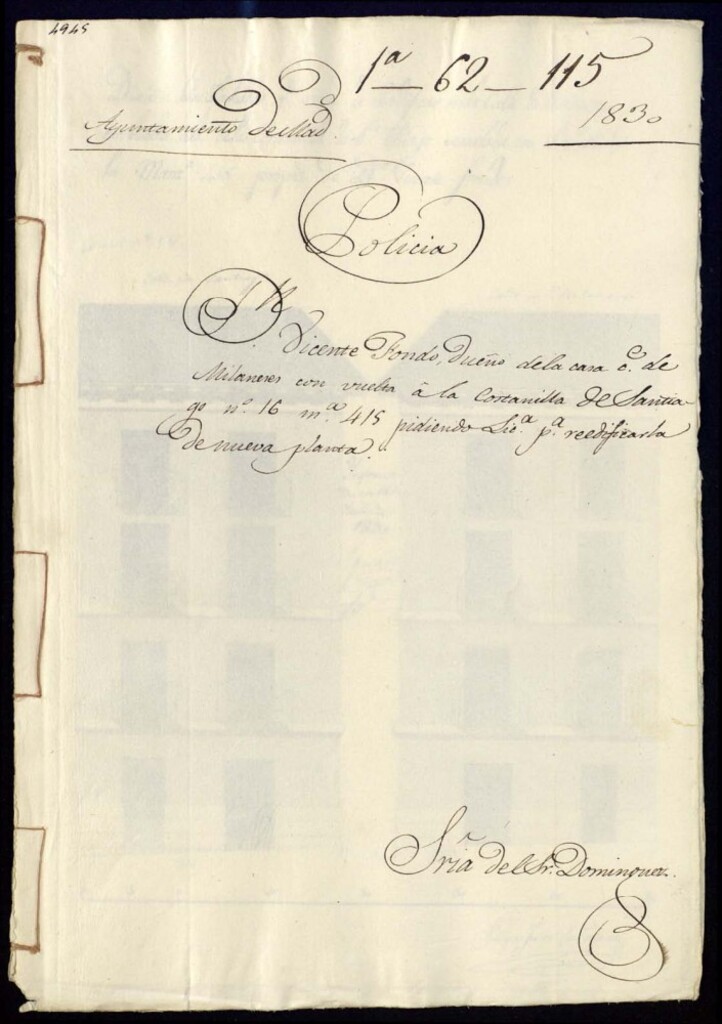 4945
1ª — 62 — 115
Ayuntamiento de Mad.
1830
Policia
Vicente Fondo, dueño de la casa c.e de
Milaneses con vuelta à la Costanilla de Santia-
go nº. 16 m.ª 415 pidiendo Lic.ª p.ª reedificarla
de nueva planta.
Sría del Sr. Dominguez.